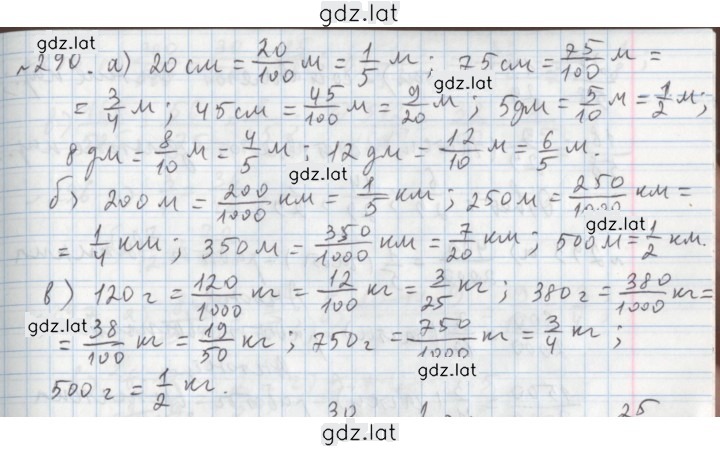 gdz.lat
gdz.lat
№290. а) 20 см = 20/100 м = 1/5 м; 75 см = 75/100 м =
gdz.lat
= 3/4 м; 45 см = 45/100 м = 9/20 м; 5 дм = 5/10 м = 1/2 м;
8 дм = 8/10 м = 4/5 м; 12 дм = 12/10 м = 6/5 м.
gdz.lat
б) 200 м = 200/1000 км = 1/5 км; 250 м = 250/1000 км =
gdz.lat
= 1/4 км; 350 м = 350/1000 км = 7/20 км; 500 м = 1/2 км.
в) 120 г = 120/1000 кг = 12/100 кг = 3/25 кг; 380 г = 380/1000 кг =
gdz.lat
= 38/100 кг = 19/50 кг; 750 г = 750/1000 кг = 3/4 кг;
gdz.lat
500 г = 1/2 кг.
30 1 25
gdz.lat